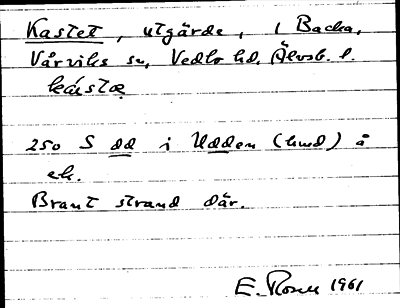 Kastet, utgärde, i Backa,
Vårviks sn, Vedbo hd, Älvsb. l.
kástæ
250 S dd i Udden (hmd) å
ek.
Brant strand där.
E. Rosen 1961